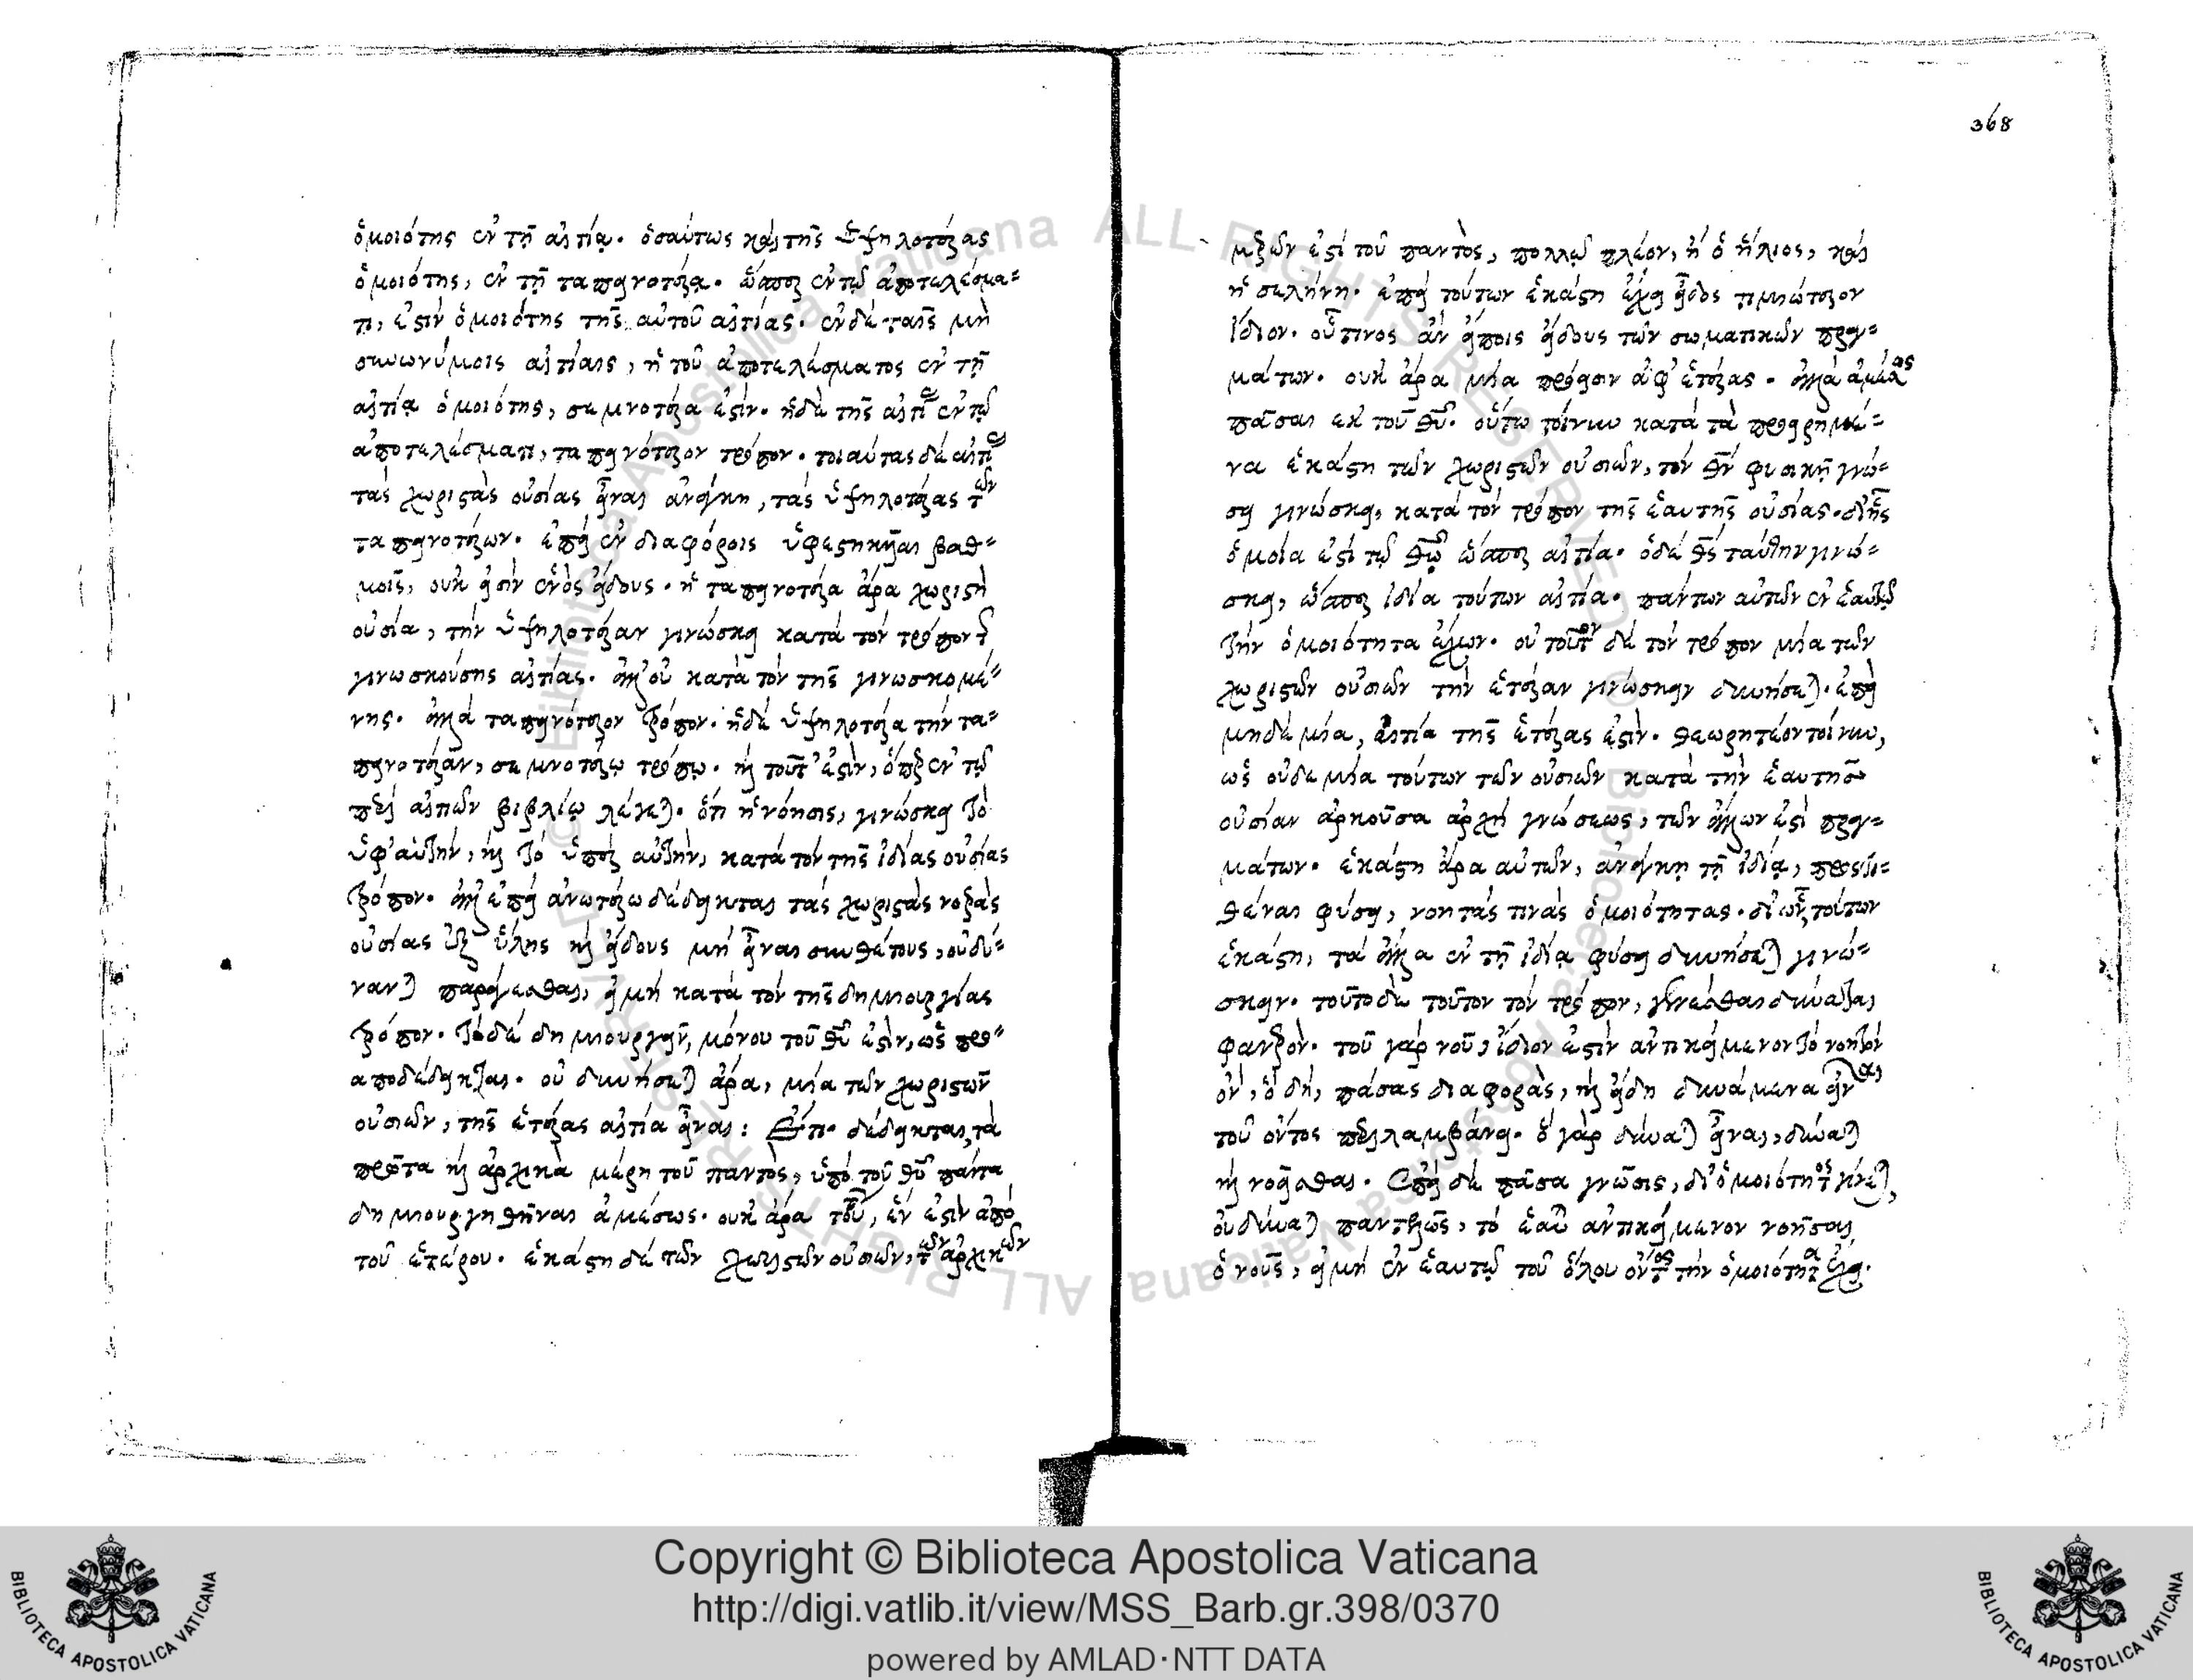 ὁμοιότης ἐν τῇ αἰτίᾳ. ὁσαύτως καὶ τῆς ὑψηλοτέρας
ὁμοιότης, ἐν τῇ ταπεινοτέρᾳ. ὥσπερ ἐν τῷ ἀποτελέσμα=
τι, ἐστὶν ὁμοιότης τῆς αὐτοῦ αἰτίας. ἐν δὲ ταῖς μὴ
συνωνύμοις αἰτίαις, ἡ τοῦ ἀποτελέσματος ἐν τῇ
αἰτίᾳ ὁμοιότης, σεμνοτέρα ἐστίν. ἡ δὲ τῆς αἰτίας ἐν τῷ
ἀποτελέσματι, ταπεινότερον τρόπον. τοιαύτας δὲ αἰτίας
τὰς χωριστὰς οὐσίας εἶναι ἀνάγκη, τὰς ὑψηλοτέρας τῶν
ταπεινοτέρων. ἐπεὶ ἐν διαφόροις ὑφεστηκυῖαι βαθ=
μοῖς, οὐκ εἰσὶν ἑνὸς εἴδους. ἡ ταπεινοτέρα ἄρα χωριστὴ
οὐσία, τὴν ὑψηλοτέραν γινώσκει κατὰ τὸν τρόπον τῆς
γινωσκούσης αἰτίας. ἀλλ' οὐ κατὰ τὸν τῆς γινωσκομέ=
νης. ἀλλὰ ταπεινότερον τρόπον. ἡ δὲ ὑψηλοτέρα τὴν τα=
πεινοτέραν, σεμνοτέρῳ τρόπῳ. καὶ τοῦτ' ἐστὶν, ὅπερ ἐν τῷ
περὶ αἰτιῶν βιβλίῳ λέγεται. ὅτι ἡ νόησις, γινώσκει τὸ
ὑφ' αὑτὴν, καὶ τὸ ὑπὲρ αὑτὴν, κατὰ τὸν τῆς ἰδίας οὐσίας
τρόπον. ἀλλ' ἐπεὶ ἀνωτέρω δέδεικται τὰς χωριστὰς νοερὰς
οὐσίας ἐξ ὕλης καὶ εἴδους μὴ εἶναι συνθέτους, οὐ δύ=
νανται παράγεσθαι, εἰ μὴ κατὰ τὸν τῆς δημιουργίας
τρόπον. τὸ δὲ δημιουργεῖν, μόνου τοῦ θῦ ἐστὶν, ὡς προ=
αποδέδεικται. οὐ δυνήσεται ἄρα, μία τῶν χωριστῶν
οὐσιῶν, τῆς ἑτέρας αἰτία εἶναι: Ἔτι. δέδεικται, τὰ
πρῶτα καὶ ἀρχικὰ μέρη τοῦ παντὸς, ὑπὸ τοῦ θῦ πάντα
δημιουργηθῆναι ἀμέσως. οὐκ ἄρα τούτων, ἕν ἐστὶν ἀπὸ
τοῦ ἑτέρου. ἑκάστη δὲ τῶν χωριστῶν οὐσιῶν, τῶν ἀρχικῶν
368
μερῶν ἐστὶ τοῦ παντὸς, πολλῷ πλέον, ἢ ὁ ἥλιος, καὶ
ἡ σελήνη. ἐπεὶ τούτων ἑκάστη ἔχει εἶδος τιμιώτερον
ἴδιον. οὗτινος ἂν εἴποις εἴδους τῶν σωματικῶν πραγ=
μάτων. οὐκ ἄρα μία πρόεισιν ἀφ' ἑτέρας. ἀλλὰ ἀμέσως
πᾶσαι ἐκ τοῦ θῦ. οὕτω τοίνυν κατὰ τὰ προειρημέ=
να ἑκάστη τῶν χωριστῶν οὐσιῶν, τὸν θν φυσικῇ γνώ=
σει γινώσκει, κατὰ τὸν τρόπον τῆς ἑαυτῆς οὐσίας. δι' ἧς
ὁμοία ἐστὶ τῷ θῷ ὥσπερ αἰτίᾳ. ὁ δὲ θς ταύτην γινώ=
σκει, ὥσπερ ἰδία τούτων αἰτία. πάντων αὐτῶν ἐν ἑαυτῷ
τὴν ὁμοιότητα ἔχων. οὐ τοῦτον δὲ τὸν τρόπον μία τῶν
χωριστῶν οὐσιῶν τὴν ἑτέραν γινώσκειν δυνήσεται. ἐπεὶ
μηδὲ μία, αἰτία τῆς ἑτέρας ἐστίν. θεωρητέον τοίνυν,
ὡς οὐδεμία τούτων τῶν οὐσιῶν κατὰ τὴν ἑαυτῆς
οὐσίαν ἀρκοῦσα ἀρχὴ γνώσεως, τῶν ἄλλων ἐστὶ πραγ=
μάτων. ἑκάστῃ ἄρα αὐτῶν, ἀνάγκη τῇ ἰδίᾳ, προστι=
θέναι φύσει, νοητάς τινὰς ὁμοιότητας. δι' ὧν, τούτων
ἑκάστη, τὰ ἄλλα ἐν τῇ ἰδίᾳ φύσει δυνήσεται γινώ=
σκειν. τοῦτο δὲ τοῦτον τὸν τρόπον, γενέσθαι δύναται
φανερόν. τοῦ γὰρ νοῦ, ἴδιον ἐστὶν ἀντικείμενον τὸ νοητὸν
ὄν, ὃ δὴ, πάσας διαφορὰς, καὶ εἴδη δυνάμενα εἶναι
τοῦ ὄντος περιλαμβάνει. ὃ γὰρ δύναται εἶναι, δύναται
καὶ νοεῖσθαι. Ἐπεὶ δὲ πᾶσα γνῶσις, δι' ὁμοιότητος γίνεται,
οὐ δύναται παντελῶς, τὸ ἑαυτοῦ ἀντικείμενον νοῆσαι
ὁ νοῦς, εἰ μὴ ἐν ἑαυτῷ τοῦ ὅλου ὄντος τὴν ὁμοιότητα ἔχει.
Copyright © Biblioteca Apostolica Vaticana
http://digi.vatlib.it/view/MSS_Barb.gr.398/0370
powered by AMLAD·NTT DATA